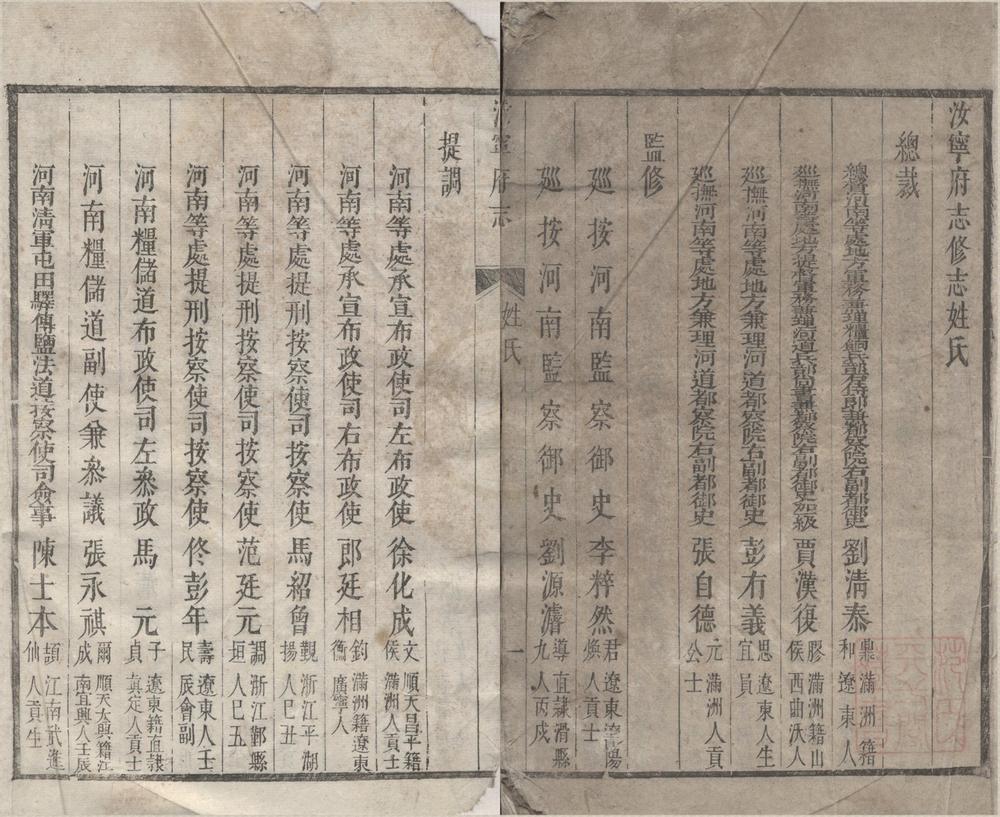 汝寧府志修志姓氏
總裁
總督河南等處地方軍務兼理糧餉兵部右侍郎兼都察院右副都御史 劉清泰 鼎和 滿洲籍遼東人
巡撫河南等處地方提督軍務兼理河道兵部尚書兼都察院右副都御史加一級 賈漢復 膠侯 滿洲籍山西曲沃人
巡撫河南等處地方兼理河道都察院右副都御史 彭有義 思宜 遼東人生員
巡撫河南等處地方兼理河道都察院右副都御史 張自德 元公 滿洲人貢士
監修
巡按河南監察御史 李粹然 君煥 遼東遼陽人貢士
巡按河南監察御史 劉源濬 導九 直隸滑縣人丙戌
汝寧府志 姓氏 一
提調
河南等處承宣布政使司左布政使 徐化成 文侯 順天昌平籍滿洲人貢士
河南等處承宣布政使司右布政使 郎廷相 鈞衡 滿洲籍遼東廣寧人
河南等處提刑按察使司按察使 馬紹曾 覲揚 浙江平湖人己丑
河南等處提刑按察使司按察使 范廷元 調垣 浙江鄞縣人己丑
河南等處提刑按察使司按察使 佟彭年 壽民 遼東人壬辰會副
河南糧儲道布政使司左叅政 馬元 子貞 遼東籍直隸真定人貢士
河南糧儲道副使兼叅議 張永祺 爾成 順天大興籍江南宜興人壬辰
河南清軍屯田驛傳鹽法道按察使司僉事 陳士本 頡仙 江南武進人貢生